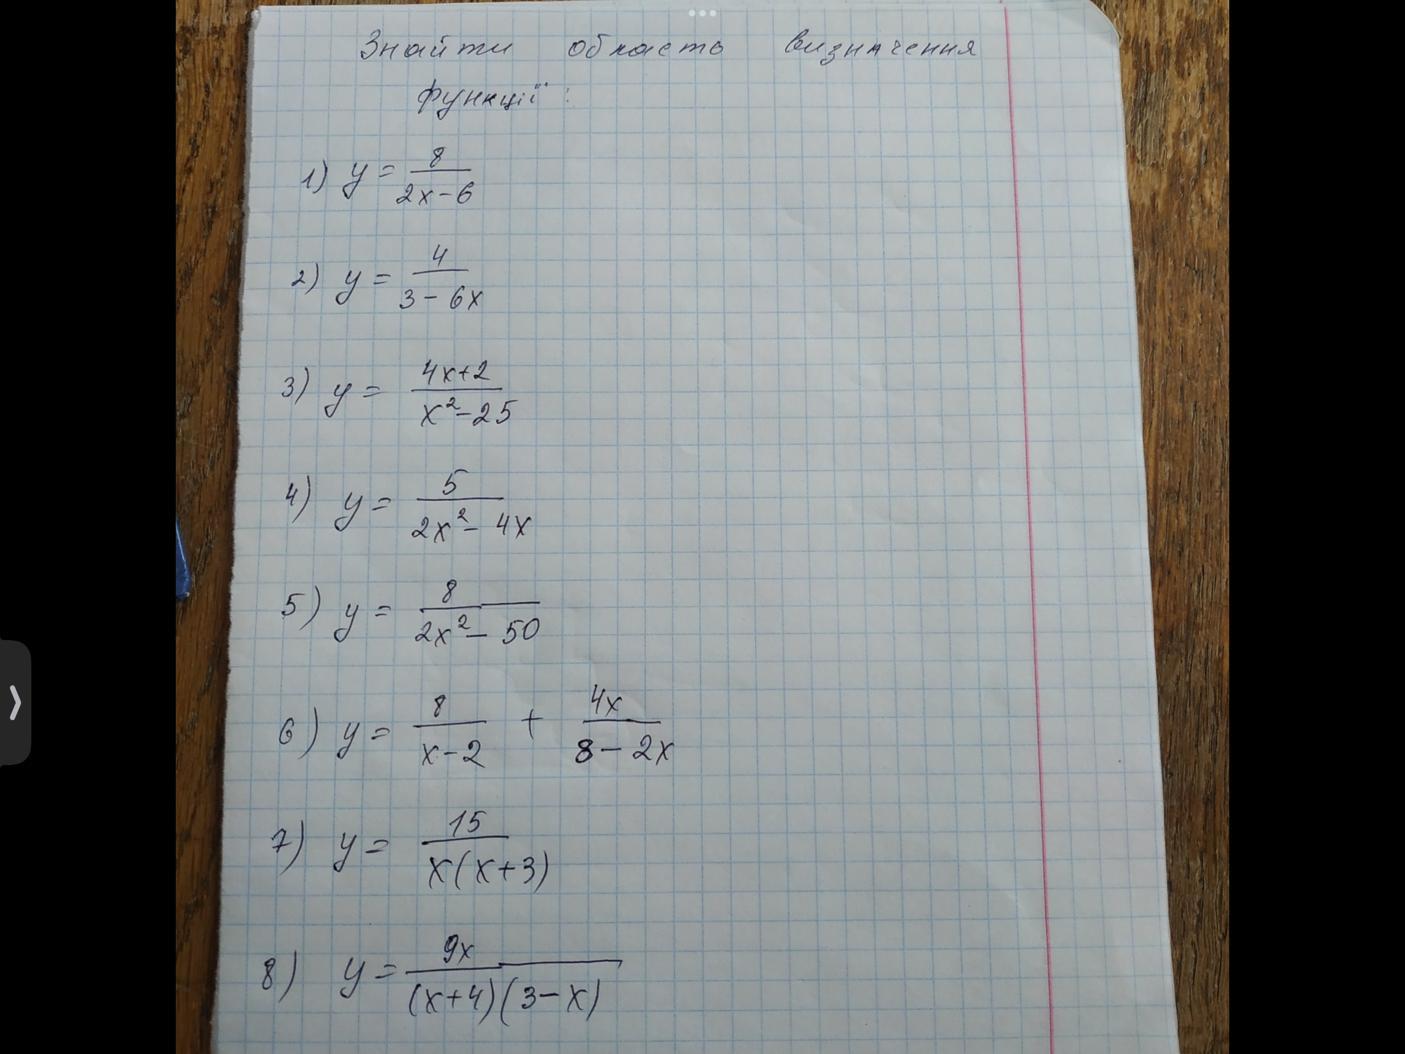 Знайти область визначення
функції:
1) y = 8/(2x-6)
2) y = 4/(3-6x)
3) y = (4x+2)/(x²-25)
4) y = 5/(2x²-4x)
5) y = 8/(2x²-50)
6) y = 8/(x-2) + 4x/(8-2x)
7) y = 15/(x(x+3))
8) y = 9x/((x+4)(3-x))